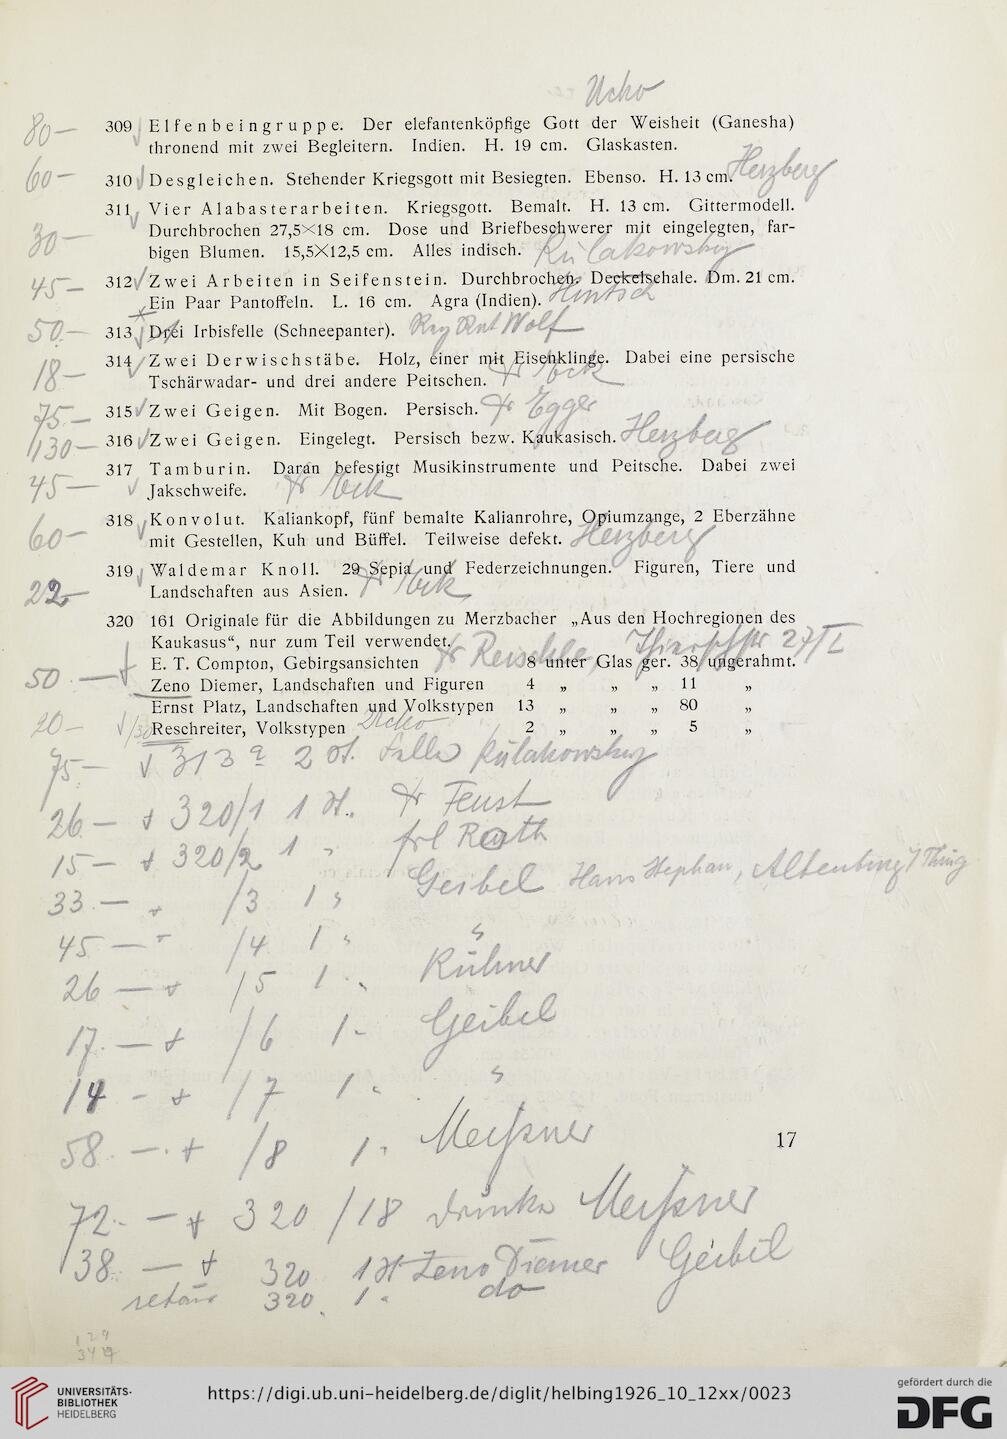 Ucko
80– 309 Elfenbeingruppe. Der elefantenköpfige Gott der Weisheit (Ganesha)
thronend mit zwei Begleitern. Indien. H. 19 cm. Glaskasten.
60– 310 Desgleichen. Stehender Kriegsgott mit Besiegten. Ebenso. H. 13 cm. Herzberg
311 Vier Alabasterarbeiten. Kriegsgott. Bemalt. H. 13 cm. Gittermodell.
30– Durchbrochen 27,5×18 cm. Dose und Briefbeschwerer mit eingelegten, far-
bigen Blumen. 15,5×12,5 cm. Alles indisch. Kulakowsky
45– 312 Zwei Arbeiten in Seifenstein. Durchbrochen. Deckelschale. Dm. 21 cm.
Ein Paar Pantoffeln. L. 16 cm. Agra (Indien). Hintsch
50.– 313 Drei Irbisfelle (Schneepanter). Wolf
18– 314 Zwei Derwischstäbe. Holz, einer mit Eisenklinge. Dabei eine persische
Tschärwadar- und drei andere Peitschen.
75.– 315 Zwei Geigen. Mit Bogen. Persisch. Egger
130– 316 Zwei Geigen. Eingelegt. Persisch bezw. Kaukasisch. Herzberg
317 Tamburin. Daran befestigt Musikinstrumente und Peitsche. Dabei zwei
45– Jakschweife.
318 Konvolut. Kaliankopf, fünf bemalte Kalianrohre, Opiumzange, 2 Eberzähne
60– mit Gestellen, Kuh und Büffel. Teilweise defekt. Herzberg
319 Waldemar Knoll. 29 Sepia und Federzeichnungen. Figuren, Tiere und
22– Landschaften aus Asien.
320 161 Originale für die Abbildungen zu Merzbacher „Aus den Hochregionen des
Kaukasus“, nur zum Teil verwendet.
50.– E. T. Compton, Gebirgsansichten 8 unter Glas ger. 38 ungerahmt.
Zeno Diemer, Landschaften und Figuren 4 „ „ „ 11 „
Ernst Platz, Landschaften und Volkstypen 13 „ „ „ 80 „
20– Reschreiter, Volkstypen Ucko 2 „ „ „ 5 „
75.– 313 a 2 St. Felle Kulakowsky
26.– 320/1 1 St. Feust
15– 320/2 1 „ frl Rath
33.– /3 1 „ Geibel Hans Stephan,
45– /4 1 „ „
26– /5 1 „ Kühner
17.– /6 1 „ Geibel
14– /7 1 „ „
58.– /8 1 „ Meißner
17
72.– 320/18 Meißner
138.– 320 1 St Zeno Diemer Geibel
retour 320 1 „ do
https://digi.ub.uni-heidelberg.de/diglit/helbing1926_10_12xx/0023
UNIVERSITÄTS-
BIBLIOTHEK
HEIDELBERG
gefördert durch die
DFG